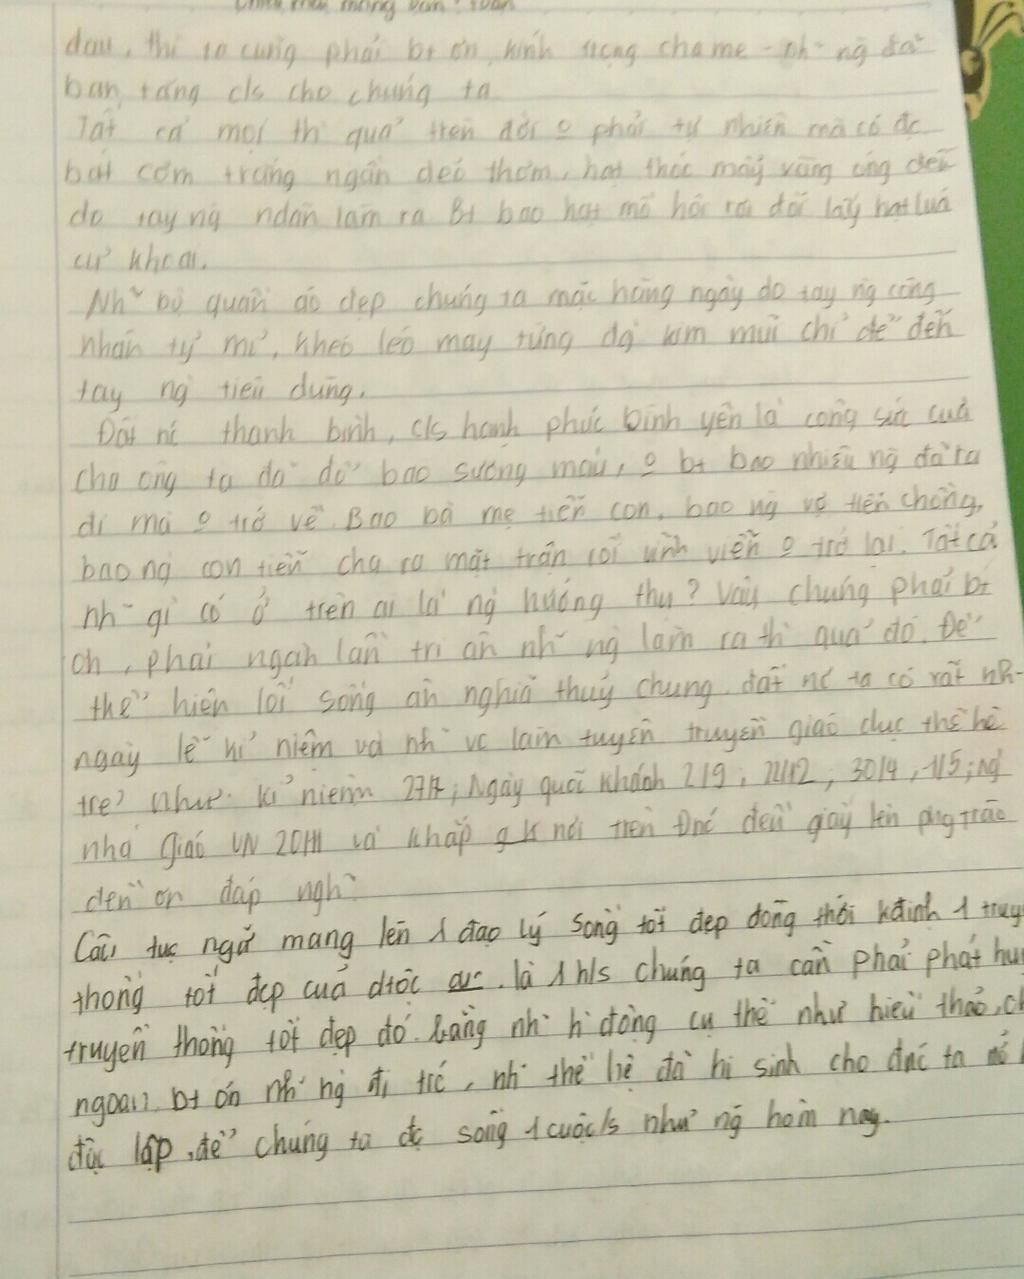 đau, thì ta cũng phải bt ơn, kính trọng cha mẹ - nh~ ng đã
ban tặng c/s cho chúng ta
Tất cả mọi th` quả trên đời o phải tự nhiên mà có đc
bát cơm trắng ngần dẻo thơm, hạt thóc mẩy vàng óng đều
do tay ng ndân làm ra Bt bao hạt mồ hôi rơi đổi lấy hạt lúa
củ khoai.
Nh~ bộ quần áo đẹp chúng ta mặc hàng ngày do tay ng công
nhân tỷ mỉ, khéo léo may từng đg` kim mũi chỉ để đến
tay ng tiêu dùng.
Đất nc thanh bình, c/s hạnh phúc bình yên là công sức của
cha ông ta đã đổ bao xương máu, o bt bao nhiêu ng đã ra
đi mà o trở về. Bao bà mẹ tiễn con, bao ng vợ tiễn chồng,
bao ng con tiễn cha ra mặt trận rồi vĩnh viễn o trở lại. Tất cả
nh~ gì có ở trên ai là ng hưởng thụ? Vậy chúng phải bt
ơn, phải tri ân nh~ ng làm ra th` quả đó. Để
thể hiện lối sống ân nghĩa thuỷ chung. đất nc ta có rất nh-
ngày lễ kỉ niệm và nh~ vc làm tuyên truyền giáo dục thế hệ
trẻ như: kỉ niệm 27/7; Ngày quốc khánh 2/9; 22/12, 30/4, 1/5; ng`
nhà giáo VN 20/11 và khắp nơi trên Đnc đều giấy lên ptrào
đền ơn đáp ngh~
Câu tục ngữ mang lên 1 đạo lý sống tốt đẹp đồng thời kđịnh 1 truy
thống tốt đẹp của dtộc. là 1 h/s chúng ta cần phải phát hu
truyền thống tốt đẹp đó bằng nh~ h`động cụ thể như hiếu thảo, ch
ngoan, bt ơn nh~ ng đi trc, nh~ thế hệ đã hi sinh cho đnc ta
độc lập, để chúng ta đc sống 1 cuộc/s như ng` hôm nay.